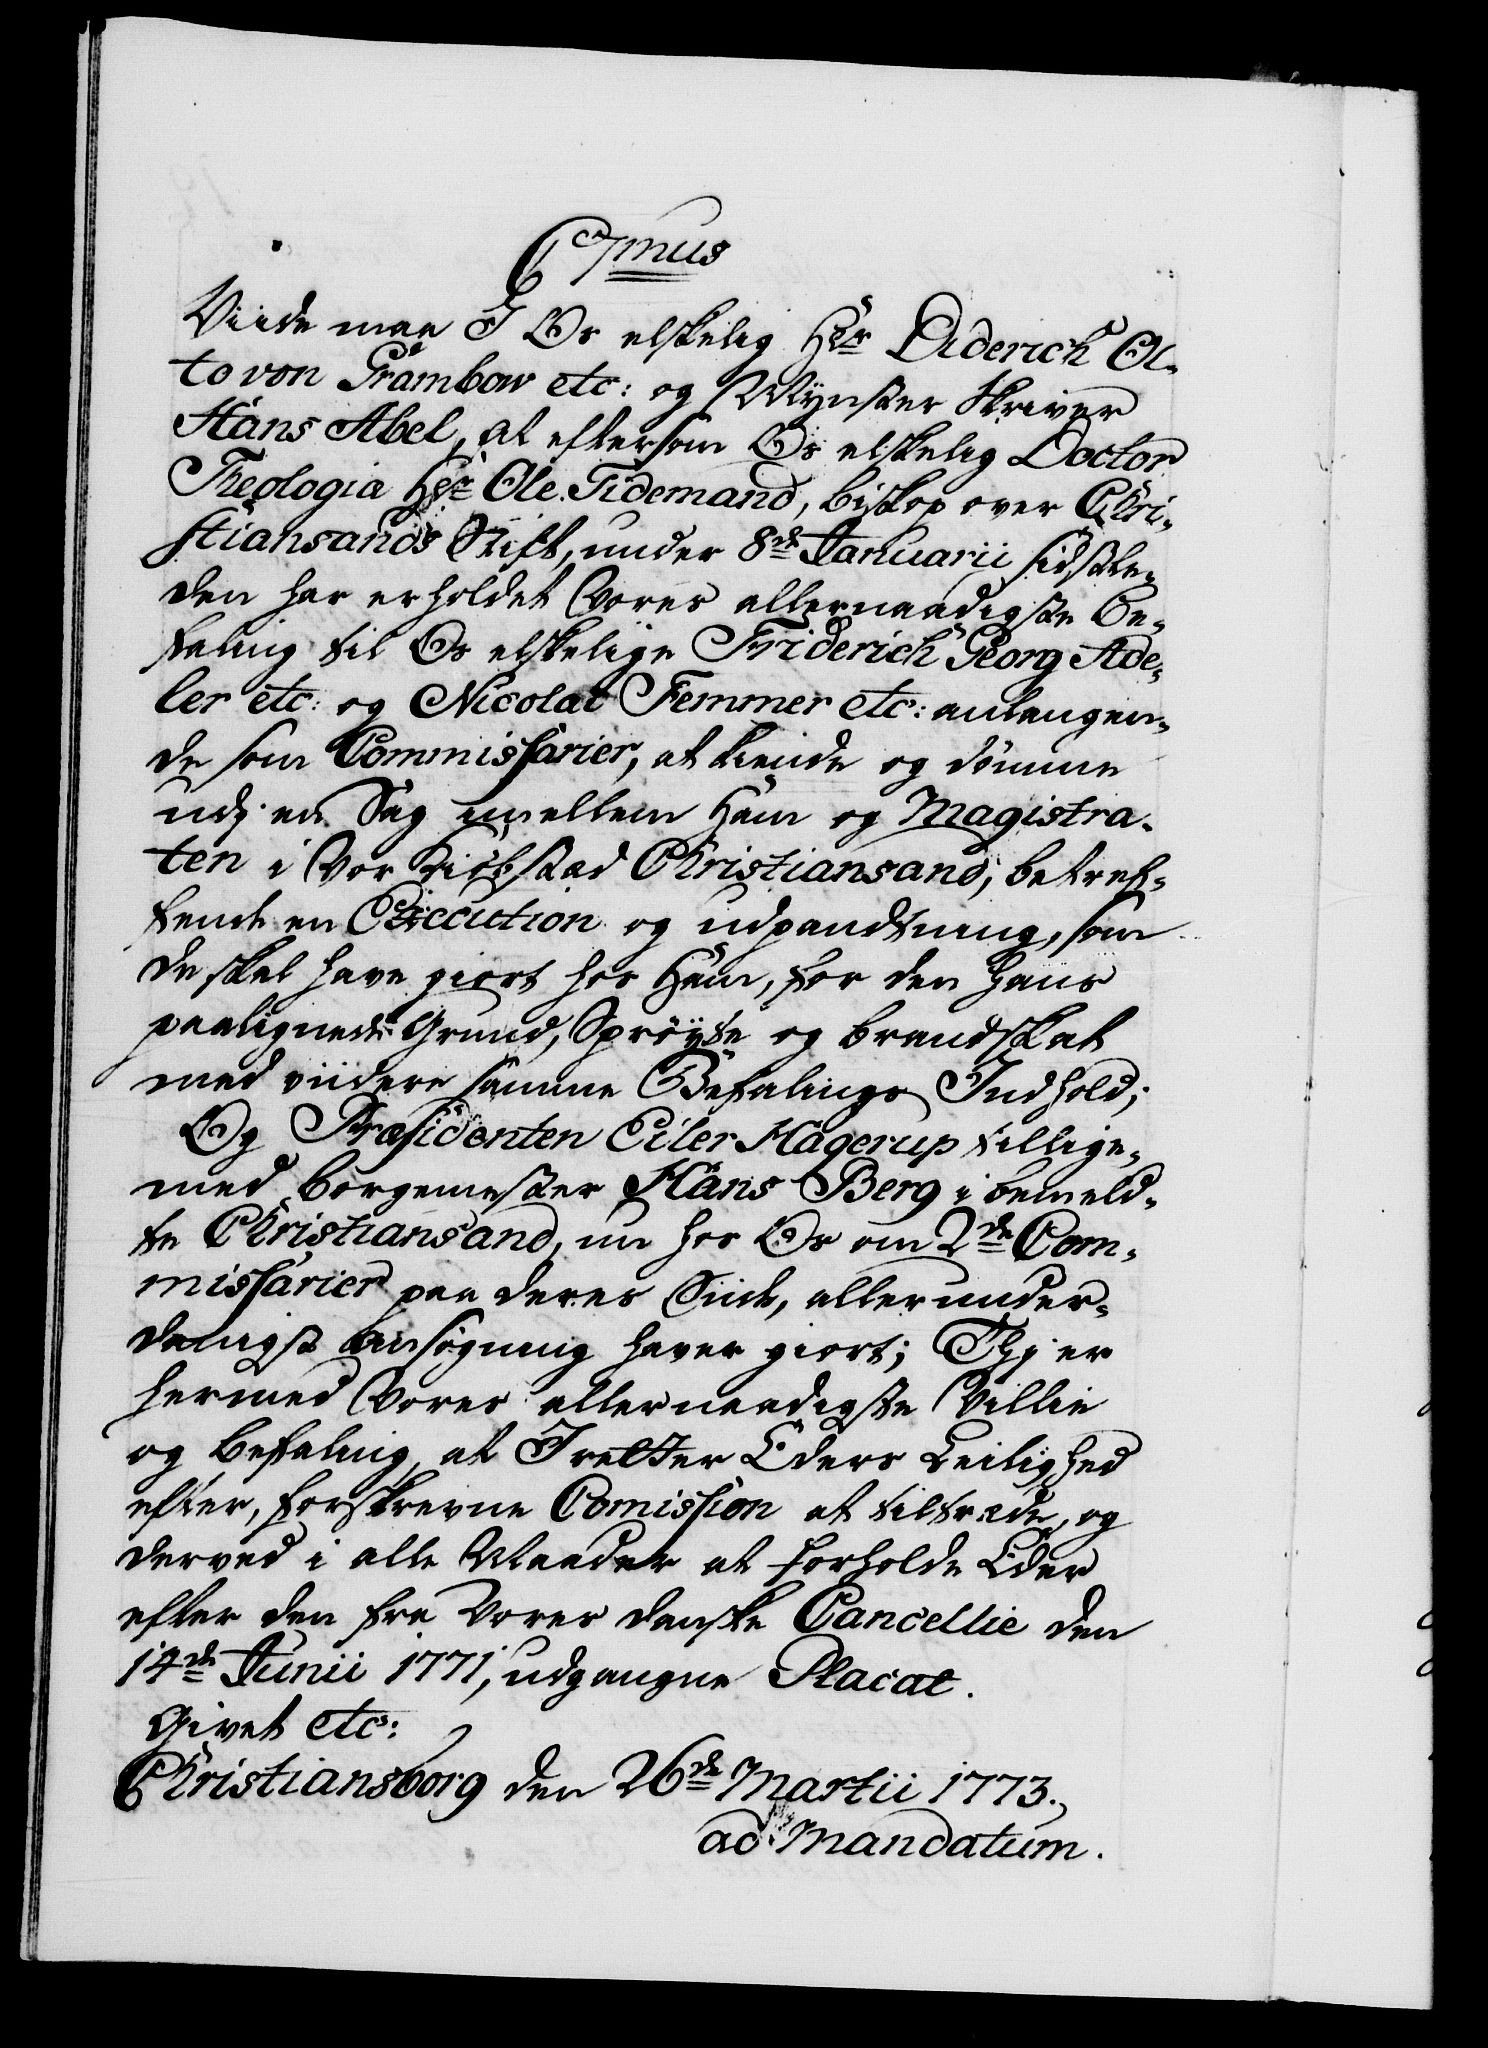 C7mus
Viide maa I Os elskelig Hr Diderich Ot-
to von Grambow etc: og Mÿnster Skriver
Hans Abel, at eftersom Os elskelig Doctor
Theologia Hr Ole Tidemand, biskop over Chri-
stiansands Stift, under 8de Januarii sidstle-
den har erholdet Vores allernaadigste be-
faling til Os elskelige Friderich Georg Ade-
ler etc: og Nicolai Femmer etc: anlangen-
de som Commissarier, at kiende og dømme
udj en Sag imellem Ham og Magistra-
ten i Vor Kiøbstad Christiansand, betref-
fende en Execution og udpandtning, som
de skal have giort hos Ham, for den hans
paalignede Grund, Sprøÿte og brandskat
med viidere samme Befalings Indhold;
Og Præsidenten Eiler Hagerup tillige-
med borgemester Hans Berg i bemeld-
te Christiansand, nu hos Os om 2de Com-
missarier paa deres Siide, allerunder-
danigst Ansøgning haver giort; Thj er
hermed Vores allernaadigste Villie
og befaling, at I retter Eders Leilighed
efter, forskrevne Comission at tiltræde, og
derved i alle Maader at forholde Eder
efter den fra Vores danske Cancellie den
14de Junii 1771, udgangne Placat.
Givet etc:
Christiansborg den 26de Martii 1773.
ad Mandatum.